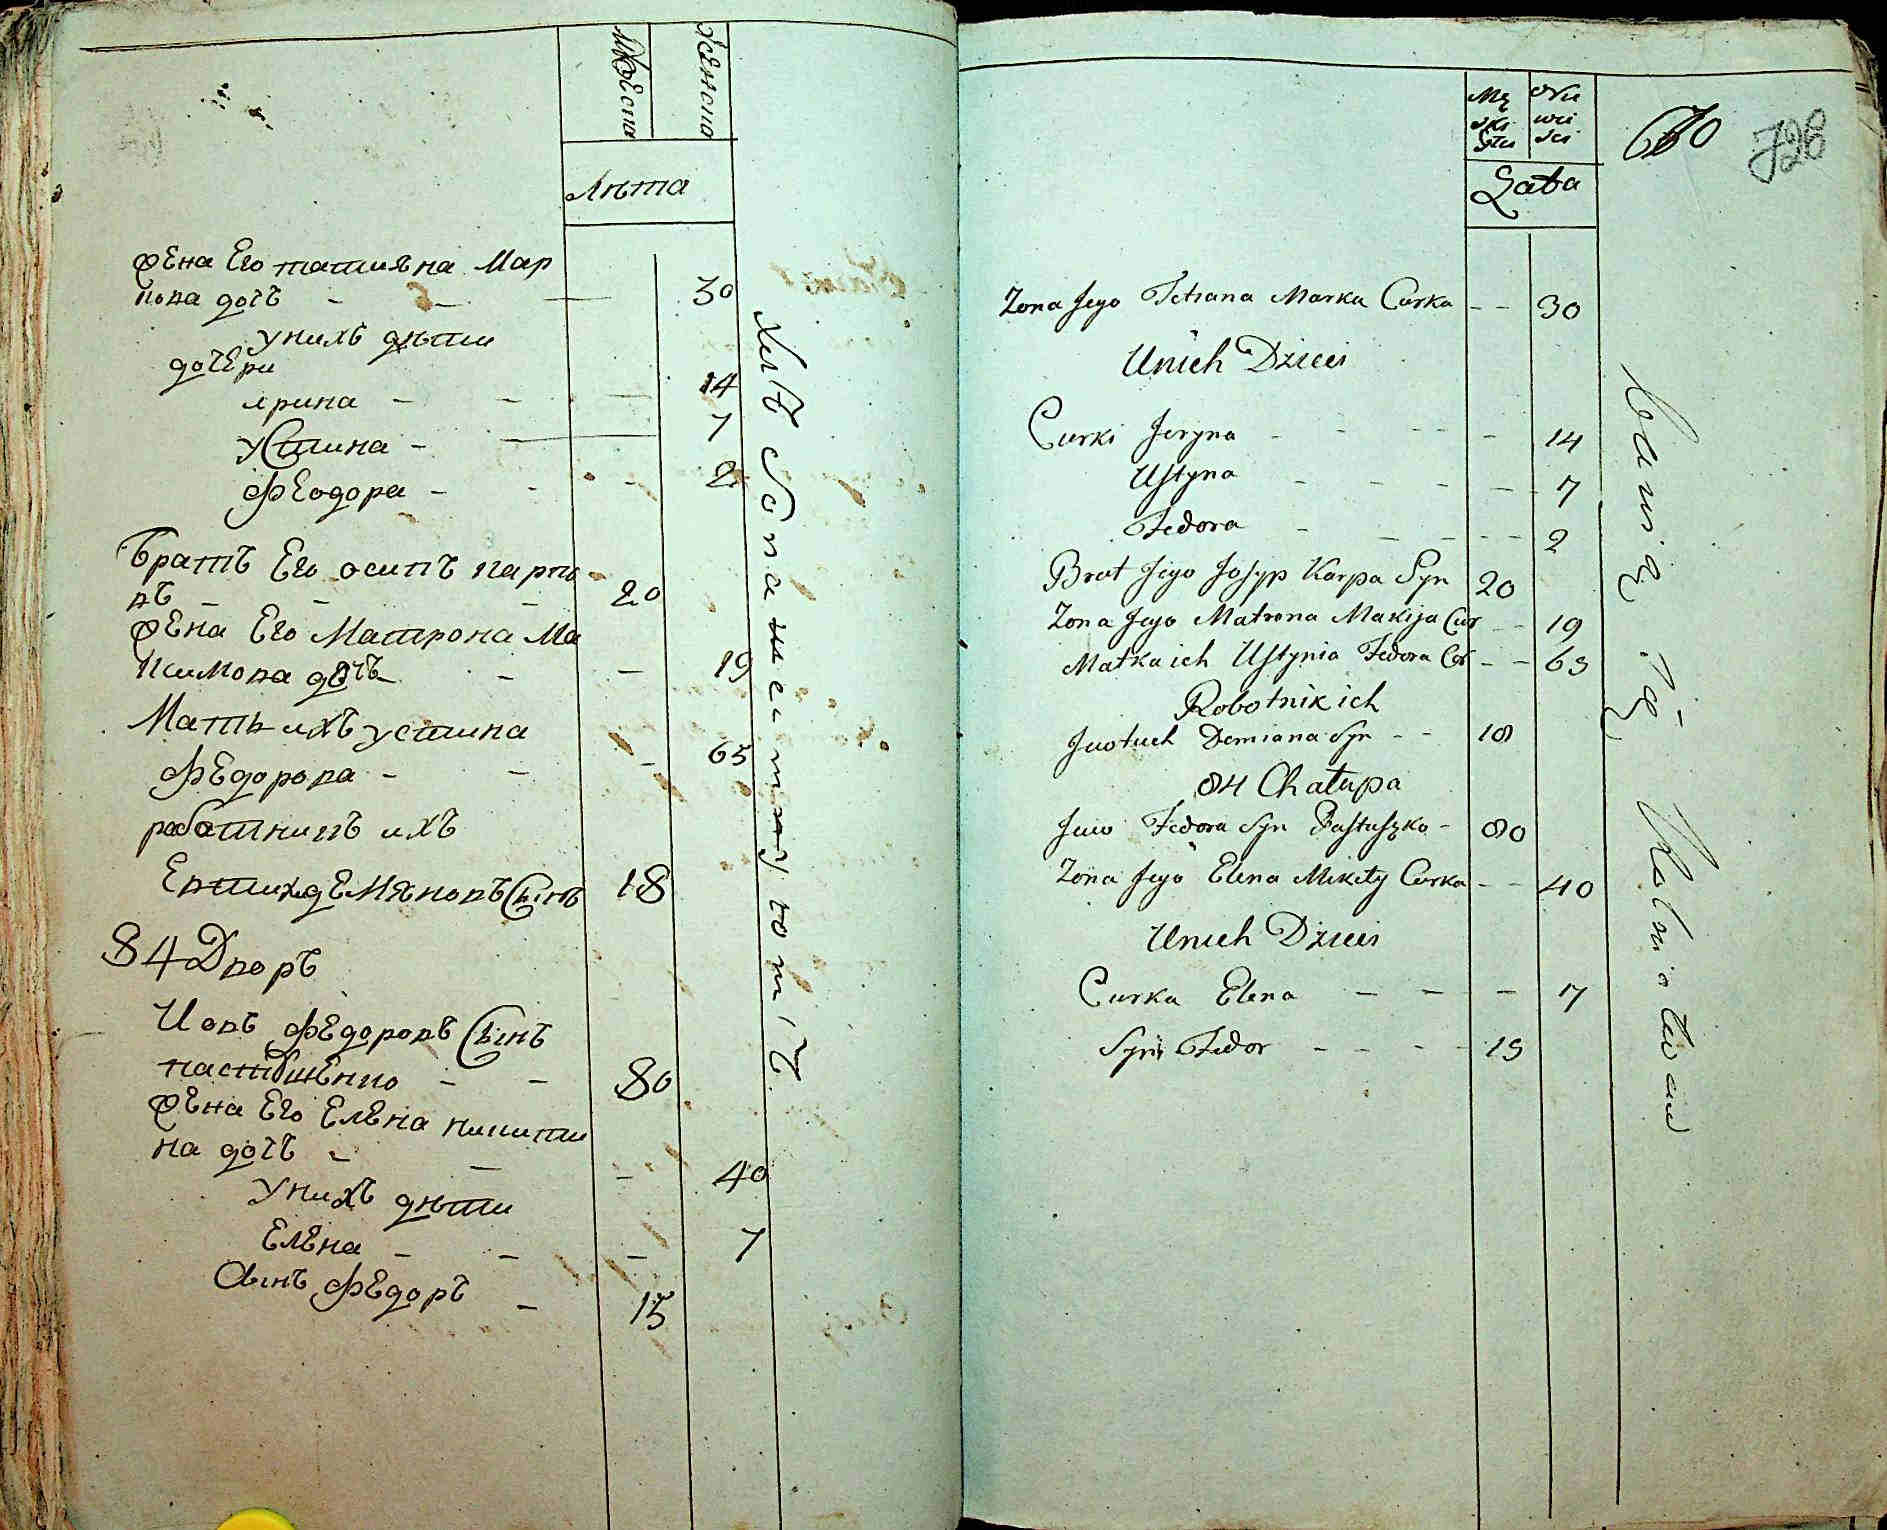 Мужеска
Женска
Лѣта
жена Его татияна Мар
кова дочь 30
у нихъ дѣти
дочери
ярина 14
устина 7
феодора 2
братъ Его осипъ карпо
въ 20
жена Его Матрона Ма
кимова дочь 19
Мать ихъ устина
федорова 65
работникъ ихъ
Евтихъ демяновъ Сынъ 18
84 Дворъ
Иовъ федоровъ Сынъ
пастушенко 80
жена Его Елена никити
на дочь 40
у нихъ дѣти
Елена 7
Сынъ федоръ 15
Mę
ski
Sex
wie
ści
70
728
Lata
Zona Jego Tetiana Marka Curka 30
Unich Dzieci
Curki Jeryna 14
Ustyna 7
Fedora 2
Brat Jego Josyp Karpa Syn 20
Zona Jego Matrona Makija Cur 19
Matka ich Ustynia Fedora Cór 65
Robotnik ich
Jwotuch Demiana Syn 18
84 Chałupa
Juw Fedora Syn Pastuszko 80
Zona Jego Elena Mikity Curka 40
Unich Dzieci
Curka Elena 7
Syn Fedor 15